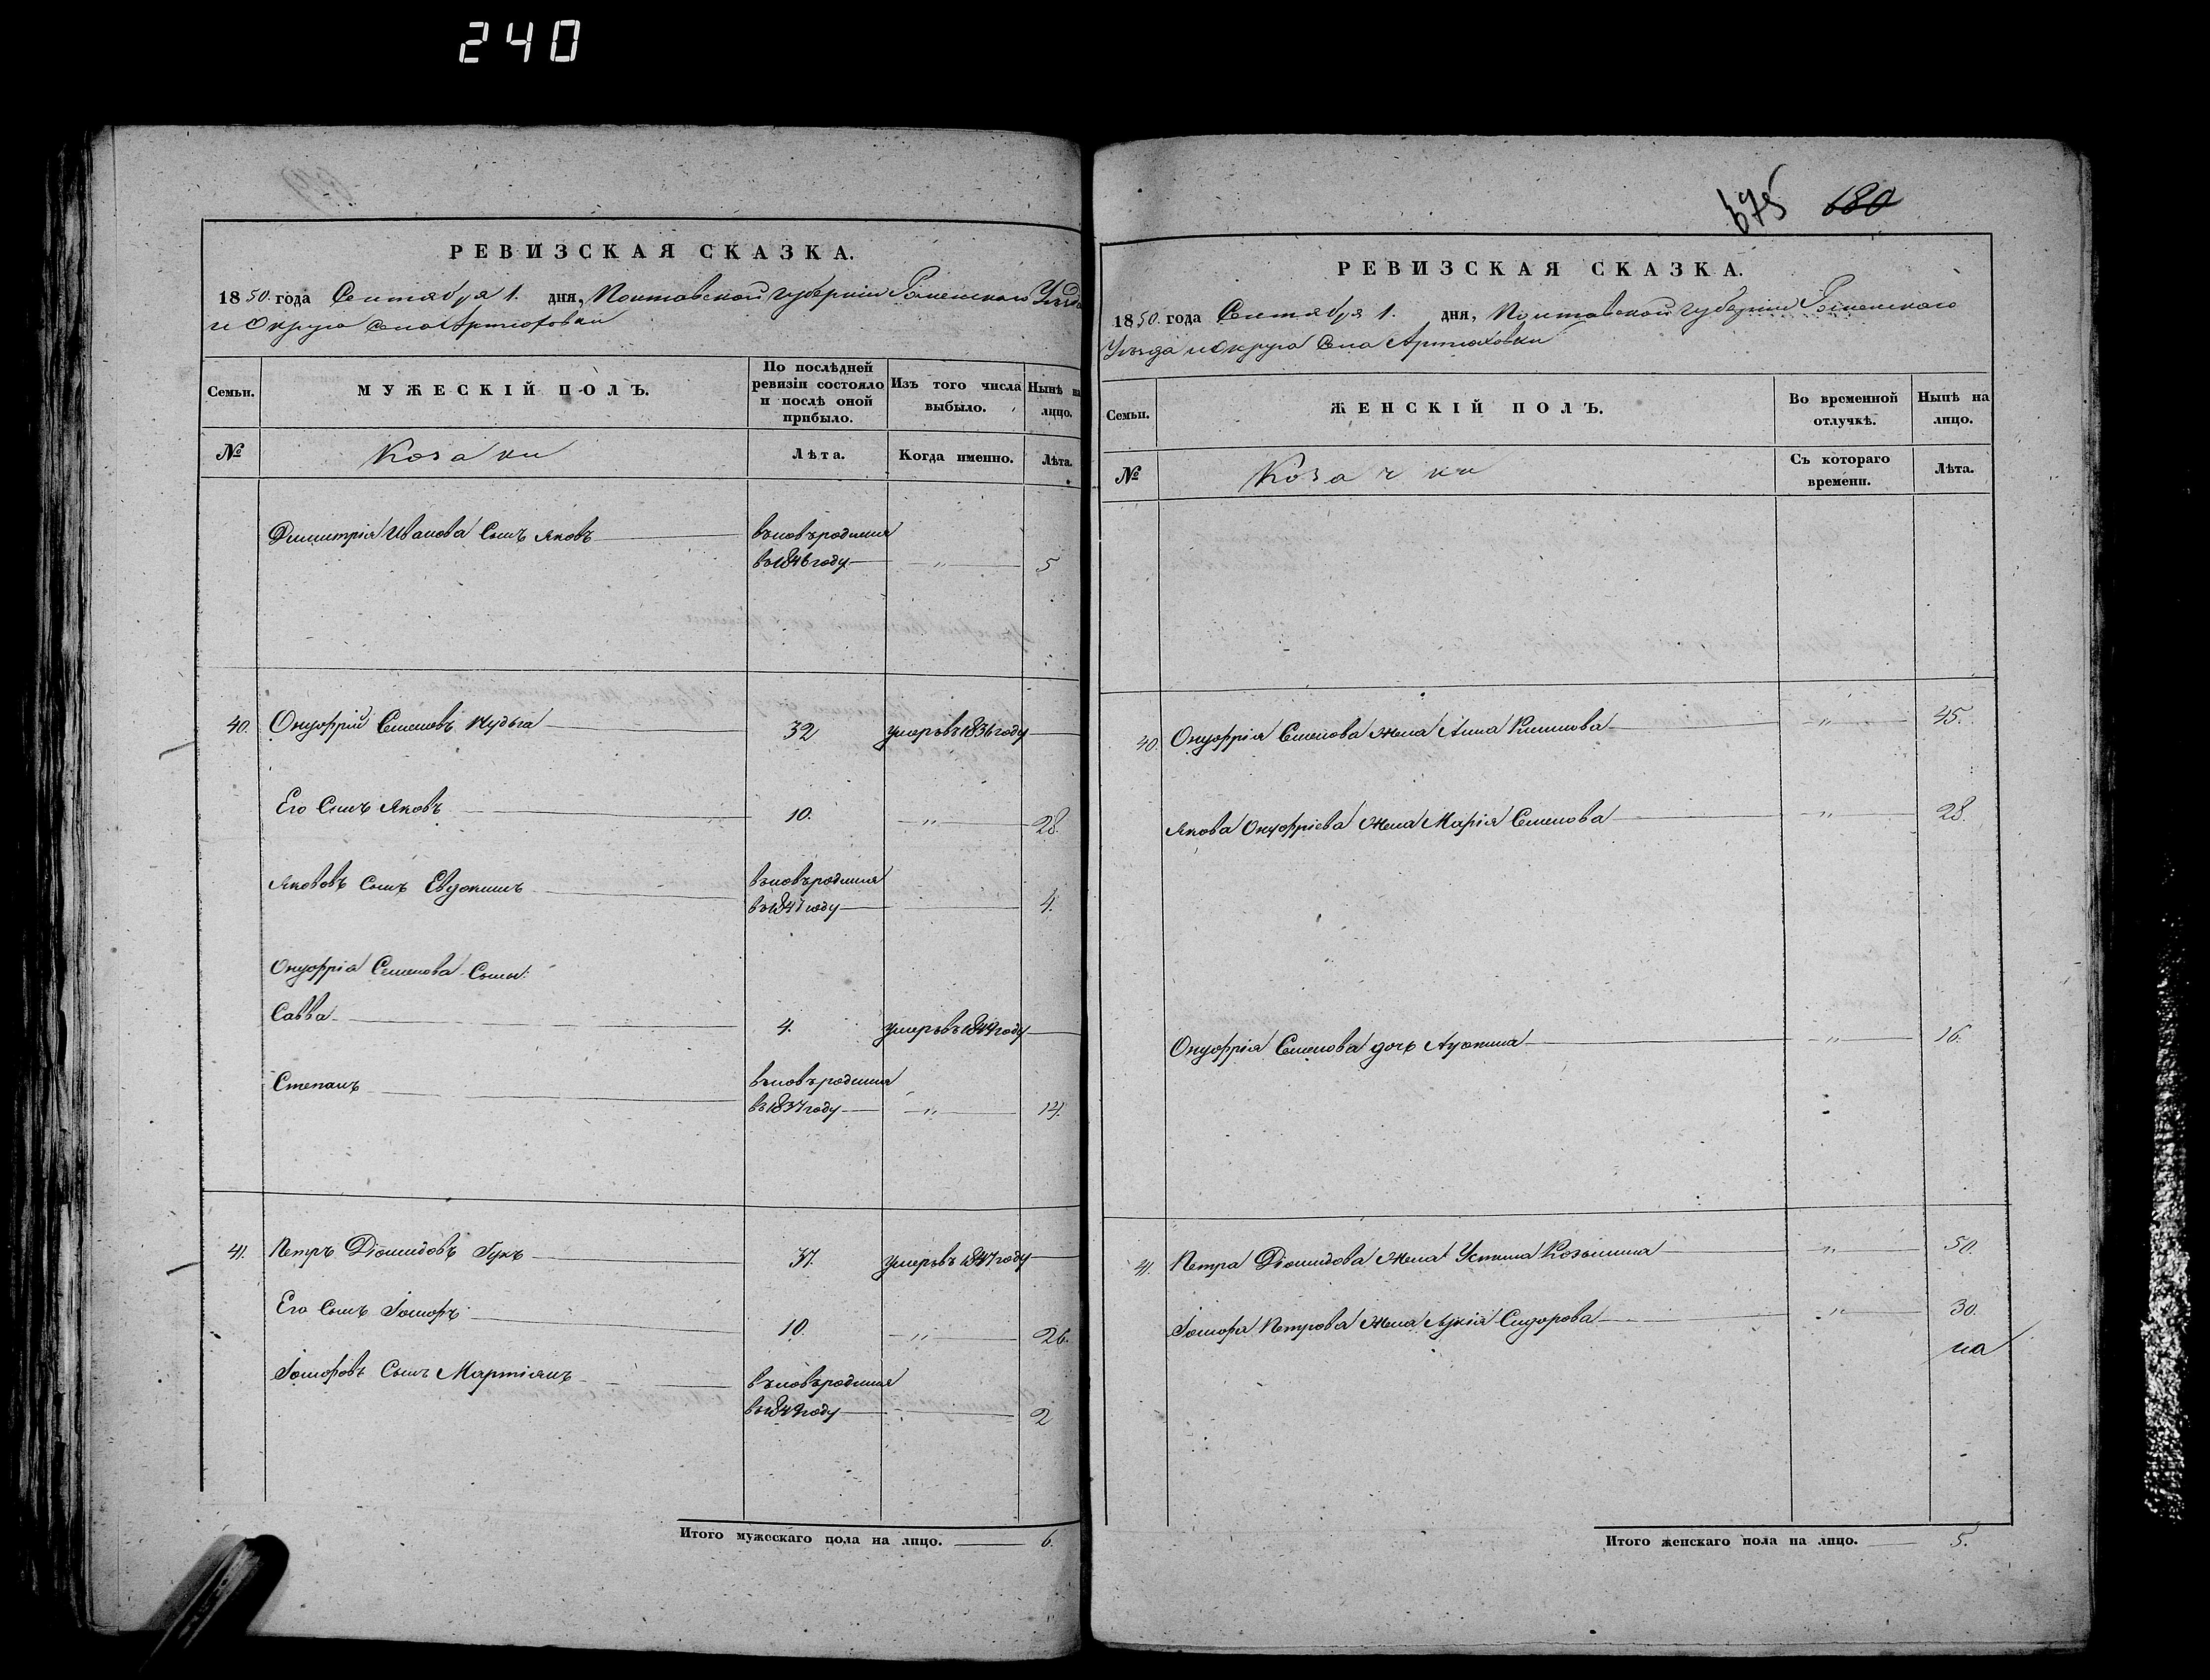 240
РЕВИЗСКАЯ СКАЗКА.
1850. года Сентября 1. дня, Полтавской губерніи Роменского Уѣзда
и Округа села Артюховки
Семьи.
МУЖЕСКІЙ ПОЛЪ.
По послѣдней ревизіи состояло и послѣ оной прибыло.
Изъ того числа выбыло.
Нынѣ на лицо.
№
Козаки
Лѣта.
Когда именно.
Лѣта.
Димитрія Иванова Сынъ Яковъ
вновь родился
въ 1846 году — " — 5
40. Онуфрій Семеновъ Кудьга 32 умеръ въ 1836 году
Его Сынъ Яковъ 10. — " — 28.
Яковъ Сынъ Евдокимъ вновь родился
въ 1847 году 4.
Онуфрія Семенова Сыны:
Савва 4. умеръ въ 1849 году
Степанъ вновь родился
въ 1837 году — " — 14.
41. Петръ Діомидовъ Гукъ 37. умеръ въ 1847 году
Его Сынъ Іосифъ 10. — " — 26.
Іосифовъ Сынъ Мартіянъ вновь родился
въ 1849 году 2
Итого мужескаго пола на лицо. 6.
675 680
РЕВИЗСКАЯ СКАЗКА.
1850. года Сентября 1. дня, Полтавской губерніи Роменского
Уѣзда и Округа села Артюховки
Семьи.
ЖЕНСКІЙ ПОЛЪ.
Во временной отлучкѣ.
Нынѣ на лицо.
№
Козачки
Съ котораго времени.
Лѣта.
40. Онуфрія Семенова жена Анна Климова — " — 45.
Якова Онуфріева жена Марія Семенова — " — 28.
Онуфрія Семенова дочь — " — 16.
41. Петра Діомидова жена Устина Козьмина — " — 50.
Іосифа Петрова жена Сидорова — " — 30.
Итого женскаго пола на лицо. 5.